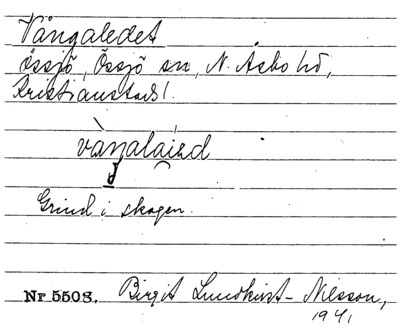 Vångaledet
Össjö, Össjö sn, N. Åsbo hd,
Kristianstads l.
Grind i skogen.
Nr 5508. Birgit Lundkvist-Nilsson,
1941